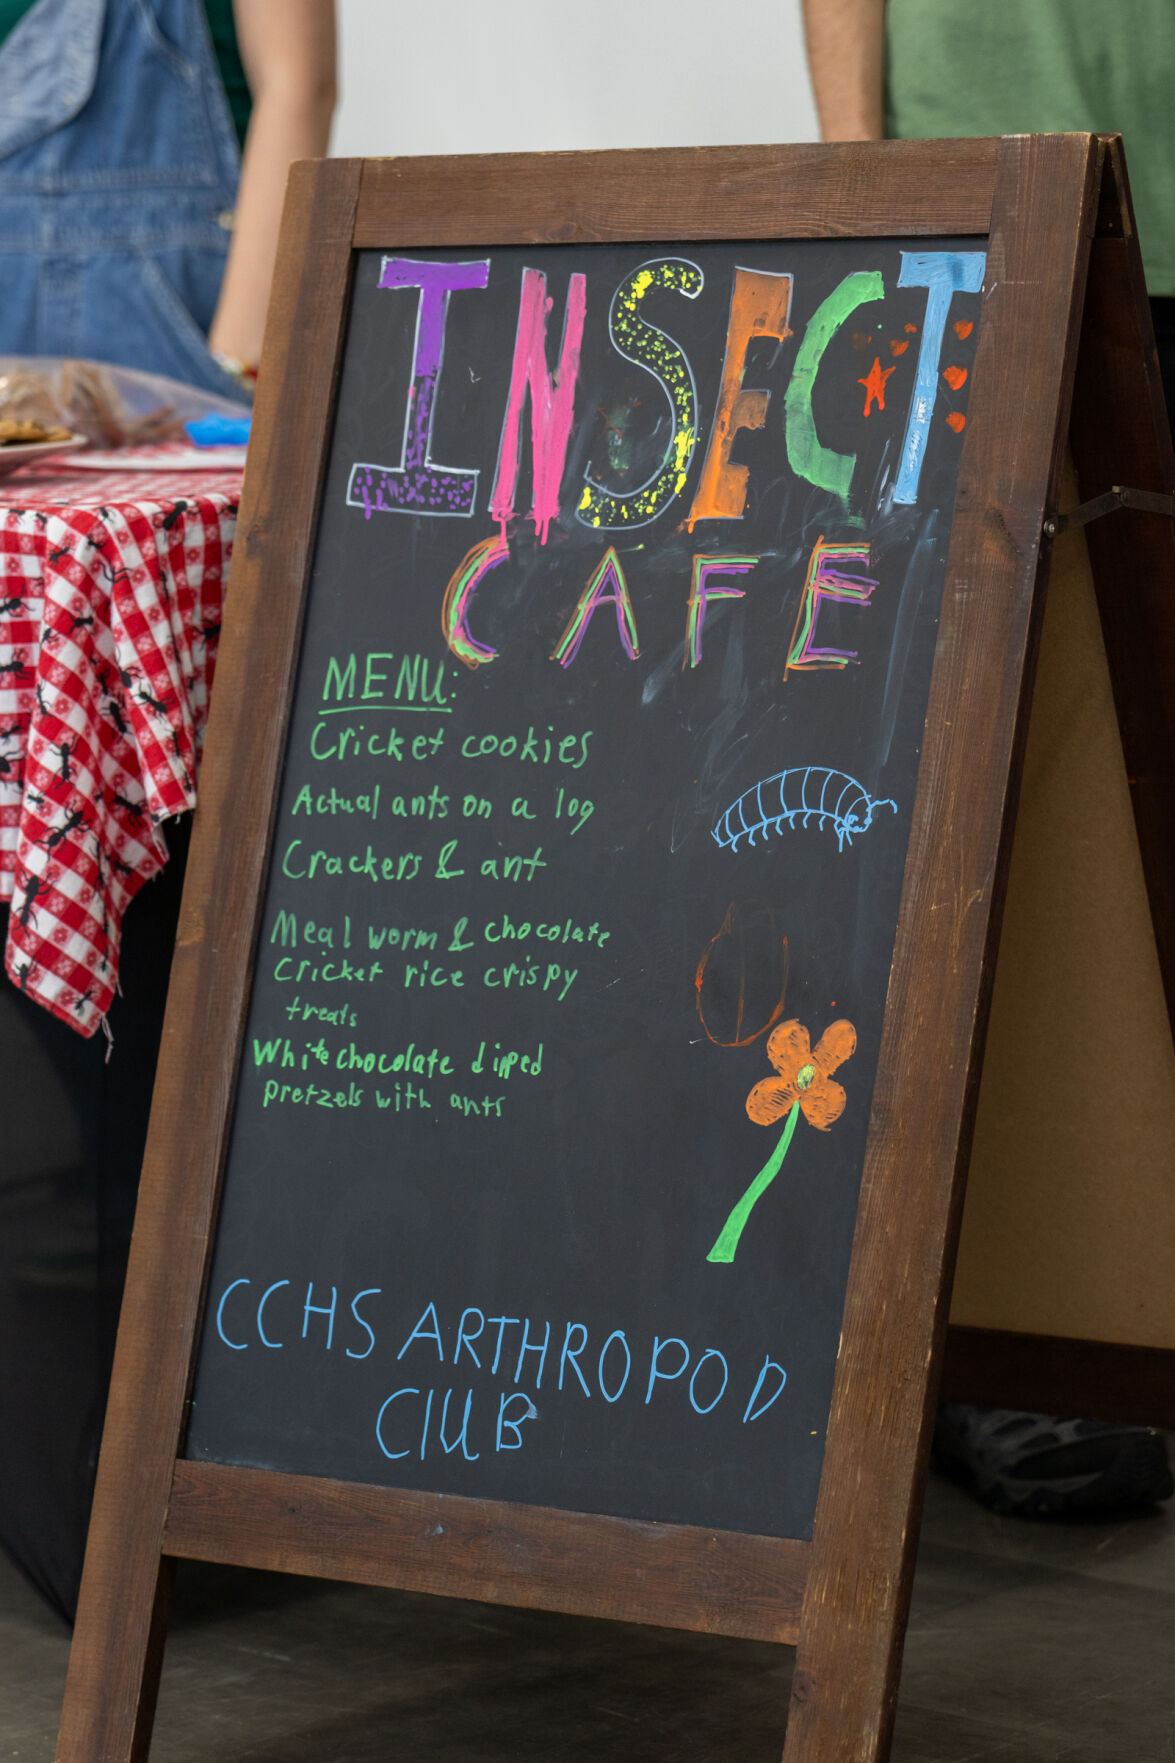 INSECT
CAFE
MENU:
Cricket cookies
Actual ants on a log
Crackers & ant
Meal worm & chocolate
Cricket rice crispy
treats
White chocolate dipped
pretzels with ants
CCHS ARTHROPOD
ClUB